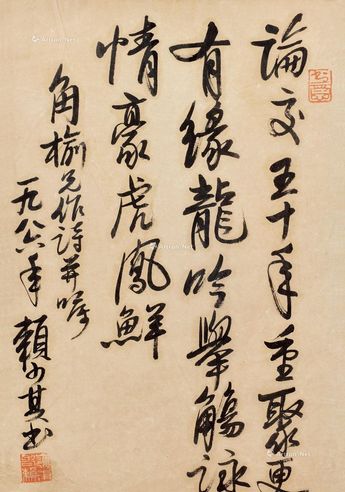 論交五十年重聚更
有緣龍吟舉觴詠
情豪虎鳳鮮
角榆兄作詩并囑
一九八六年 賴少其書